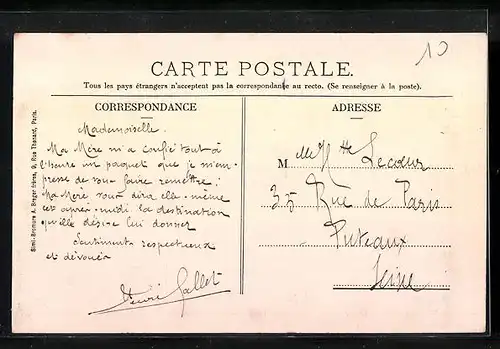 10
CARTE POSTALE.
Tous les pays étrangers n'acceptent pas la correspondance au recto. (Se renseigner à la poste).
CORRESPONDANCE
Mademoiselle.
Ma Mère m'a confié tout à
l'heure un paquet que je m'em-
presse de vous faire remettre;
Ma Mère vous dira elle-même
cet après-midi la destination
qu'elle désire lui donner
Sentiments respectueux
et dévoués
Henri Gallet
ADRESSE
Melle Lecœur
35 Rue de Paris
Puteaux
Seine
Simili-Bromure A. Breger frères, 9, Rue Thénard, Paris.